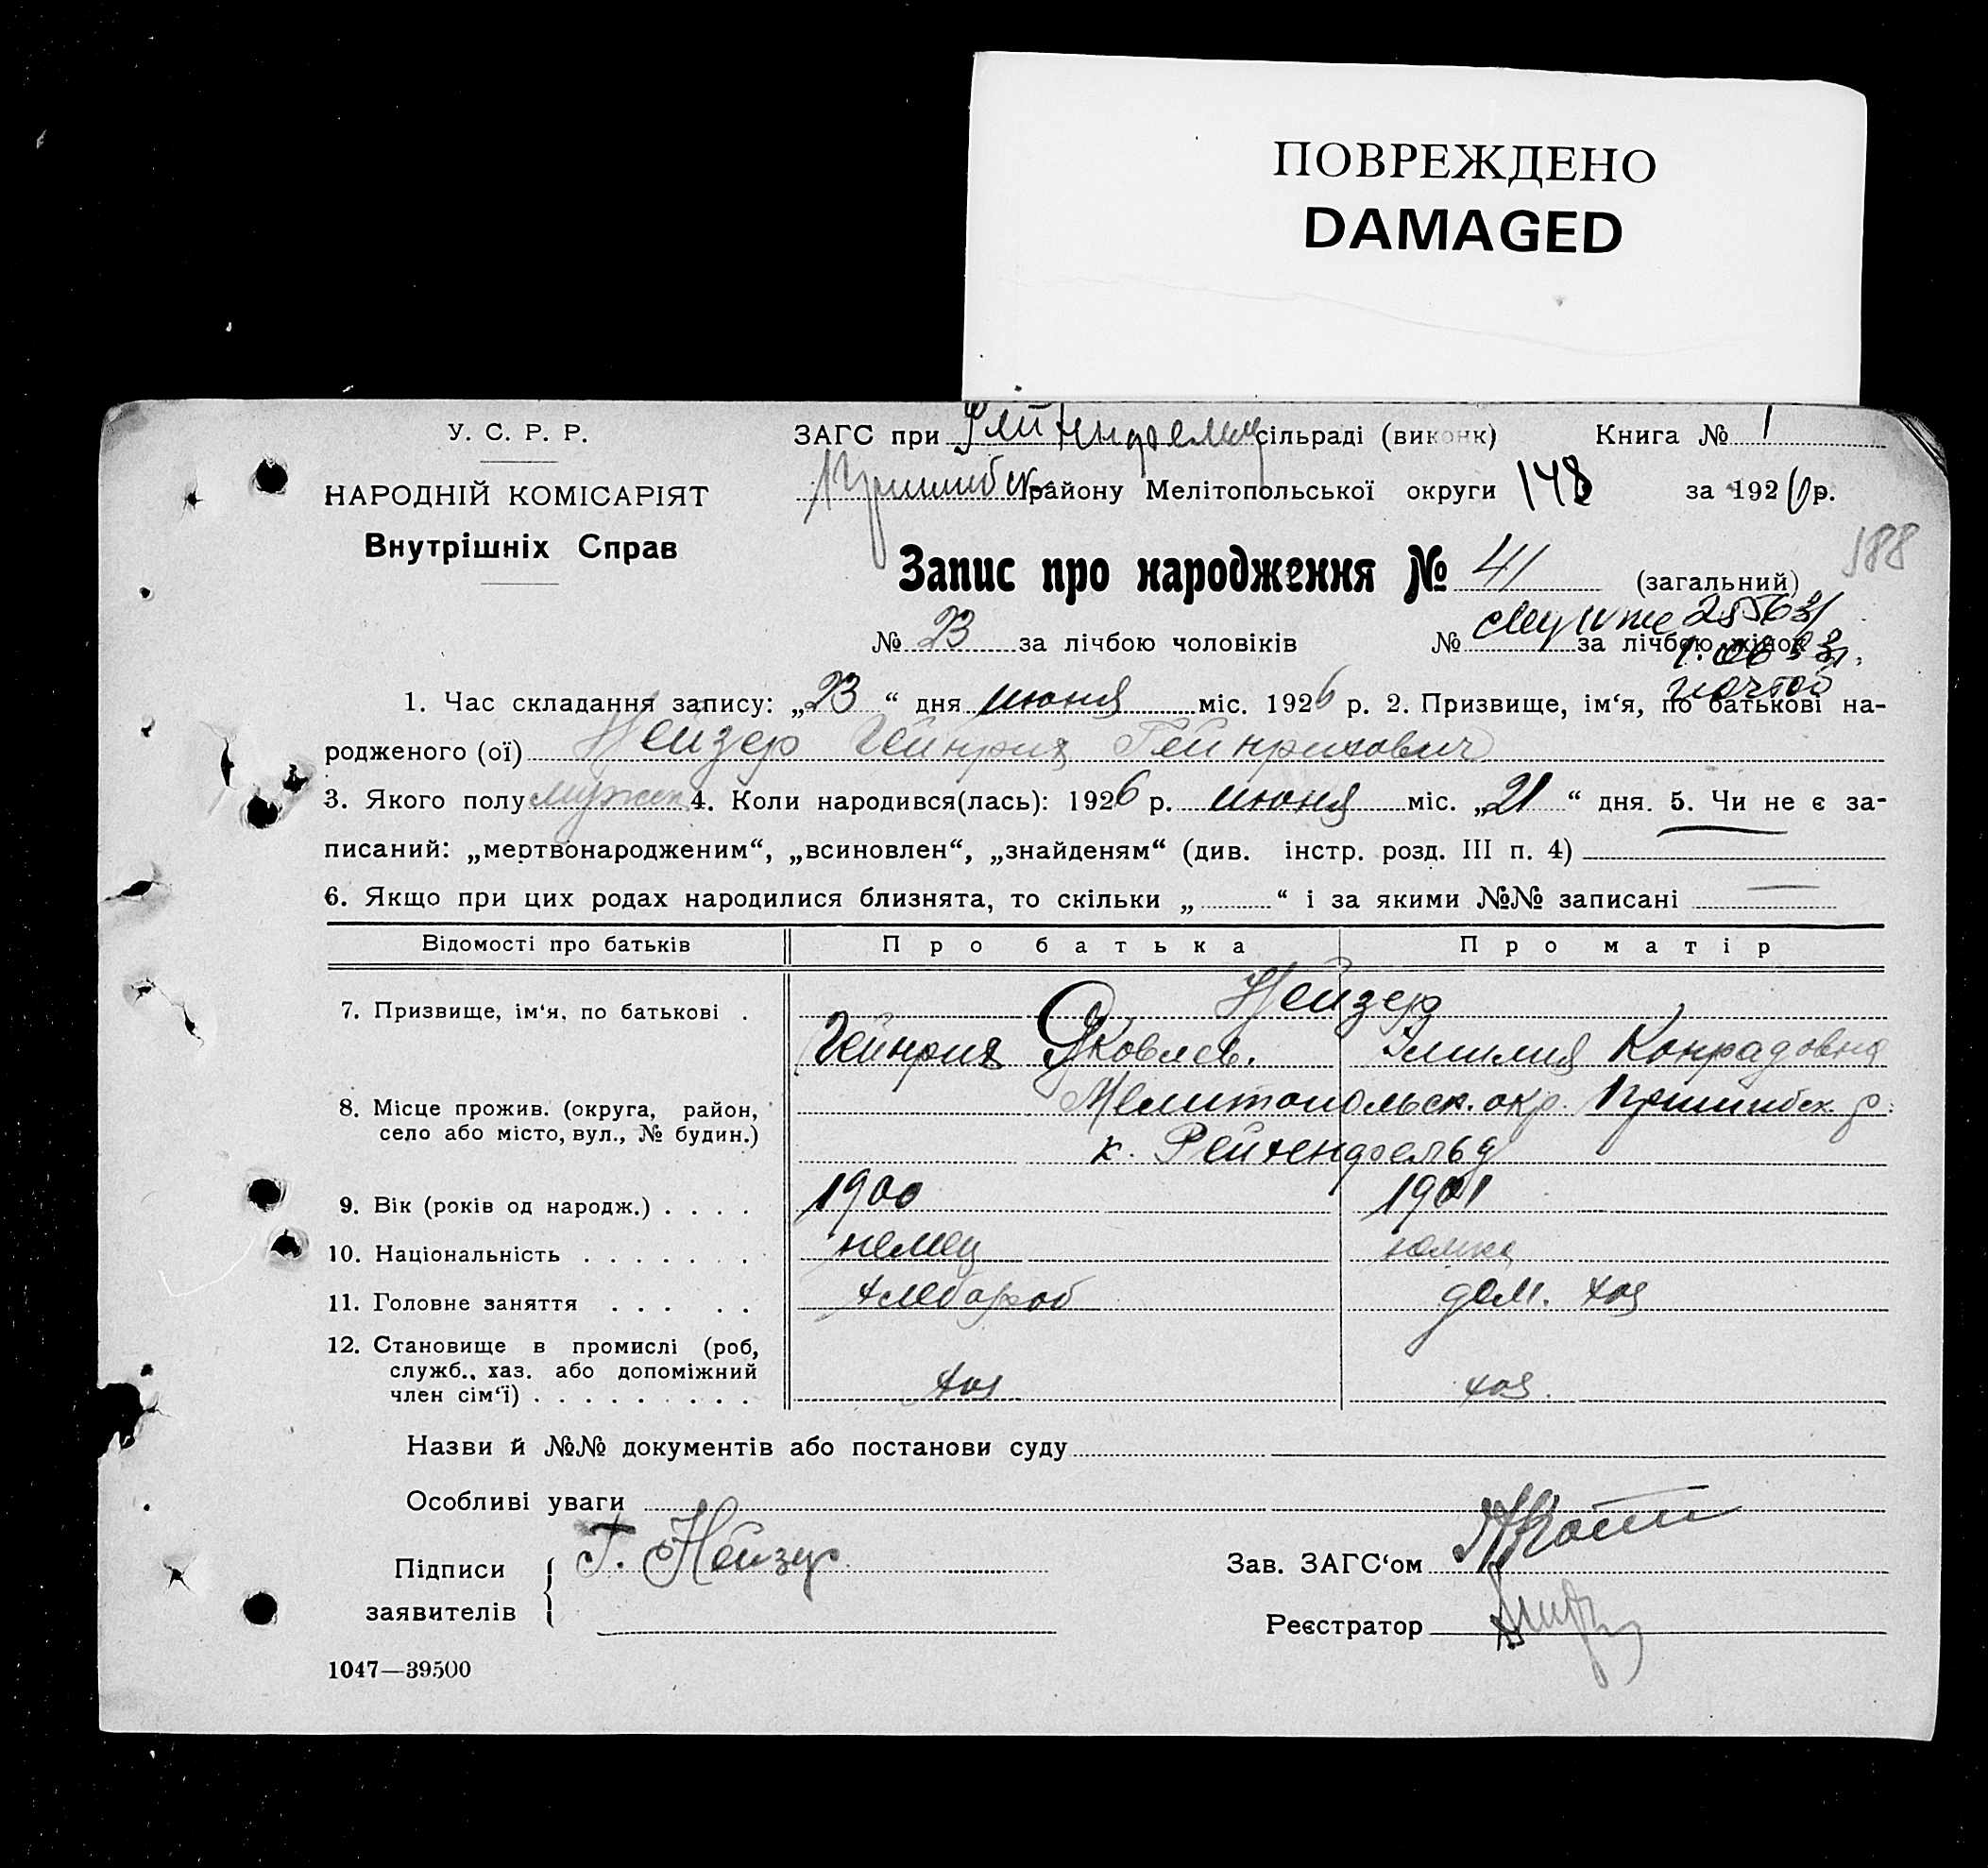 ПОВРЕЖДЕНО
DAMAGED
У. С. Р. Р.
НАРОДНІЙ КОМІСАРІЯТ
Внутрішніх Справ
ЗАГС при Рейхенфельд сільраді (виконк) Книга № 1
Пришибск. району Мелітопольської округи 148 за 1926 р.
188
Запис про народження № 41 (загальний)
№ 23 за лічбою чоловіків № за лічбою жінок
почтой
1. Час складання запису: „23“ дня июня міс. 1926 р. 2. Призвище, ім‘я, по батькові на-
родженого (ої) Нейзер Гейнрих Гейнрихович
3. Якого полу мужск 4. Коли народився(лась): 1926 р. июня міс. „21“ дня. 5. Чи не є за-
писаний: „мертвонародженим“, „всиновлен“, „знайденям“ (див. інстр. розд. III п. 4)
6. Якщо при цих родах народилися близнята, то скільки „ “ і за якими №№ записані —
Відомості про батьків Про батька Про матір
7. Призвище, ім‘я, по батькові . Нейзер
Гейнрих Яковлев. Эмилия Конрадовна
8. Місце прожив. (округа, район, село або місто, вул., № будин.) Мелитопольск. окр. Пришибск. р.
к. Рейхенфельд
9. Вік (років од народж.) . . . . 1900 1901
10. Національність . . . . . . . немец немка
11. Головне заняття . . . . . хлебороб дом. хоз
12. Становище в промислі (роб, служб., хаз. або допоміжний член сім‘ї) . . . . . . . . . хоз хоз.
Назви й №№ документів або постанови суду
Особливі уваги
Підписи заявителів Г. Нейзер
Зав. ЗАГС‘ом
Реєстратор
1047—39500